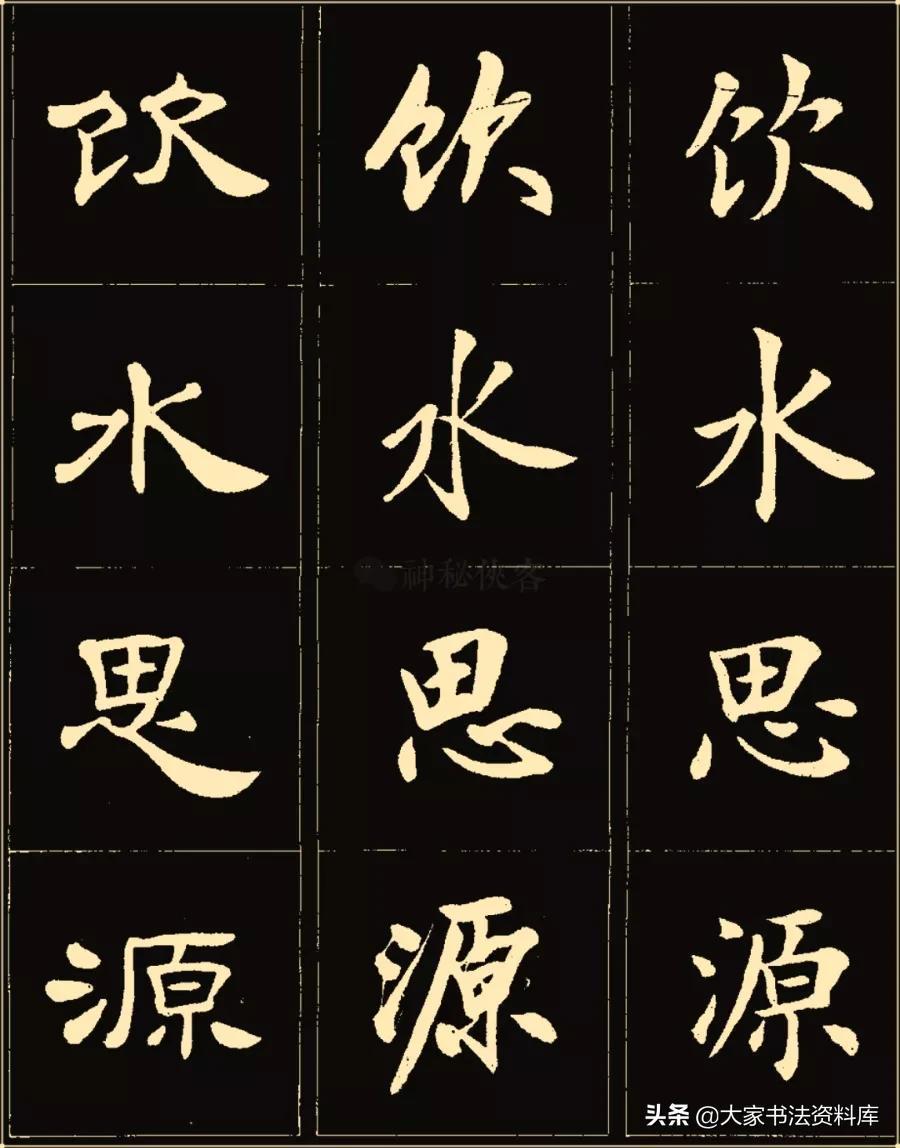 饮水思源
饮水思源
饮水思源
神秘侠客
头条 @大家书法资料库